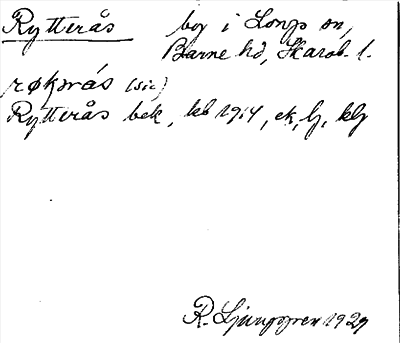 Rytterås by i Longs sn,
Barne hd, Skarab. l.
røkɔrás (sic)
Rytterås bek, kb 19:4, ek, lj, klg
R. Ljunggren 1929